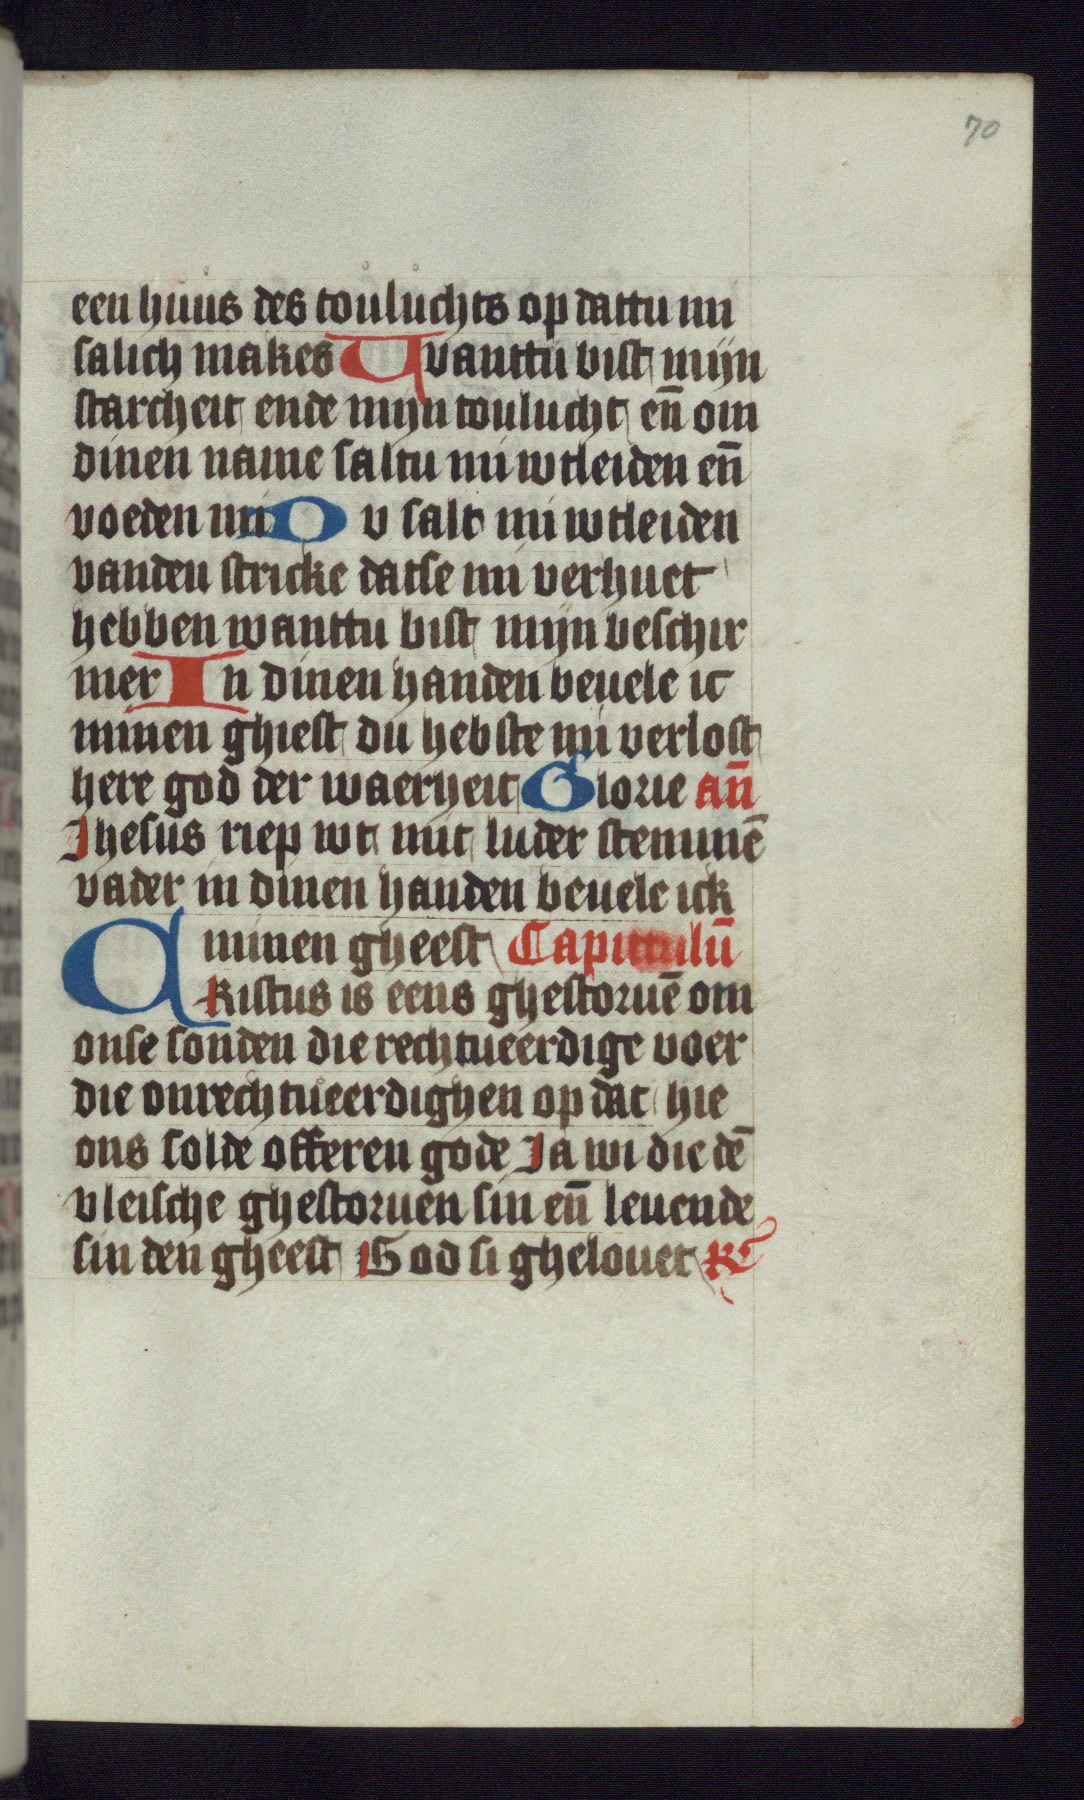 70
een huus des touluchts op dattu mi
salich makes Uvanttu bist mijn
starcheit ende mijn toulucht en̄ om
dinen name saltu mi wtleiden en̄
voeden mi Dv salt mi wtleiden
vanden stricke datse mi verhuet
hebben wanttu bist mijn beschir
mer In dinen handen beuele ic
minen ghiest du hebste mi verlost
here god der waerheit Glorie an̄
Jhesus riep wt mit luder stemmē
vader in dinen handen beuele ick
minen gheest Capittulū
CRistus is eens ghestoruē om
onse sonden die rechtueerdige voer
die onrechtueerdighen op dat hie
ons solde offeren gode Ja wi die dē
vleische ghestoruen sin en̄ leuende
sin den gheest God si ghelouet R